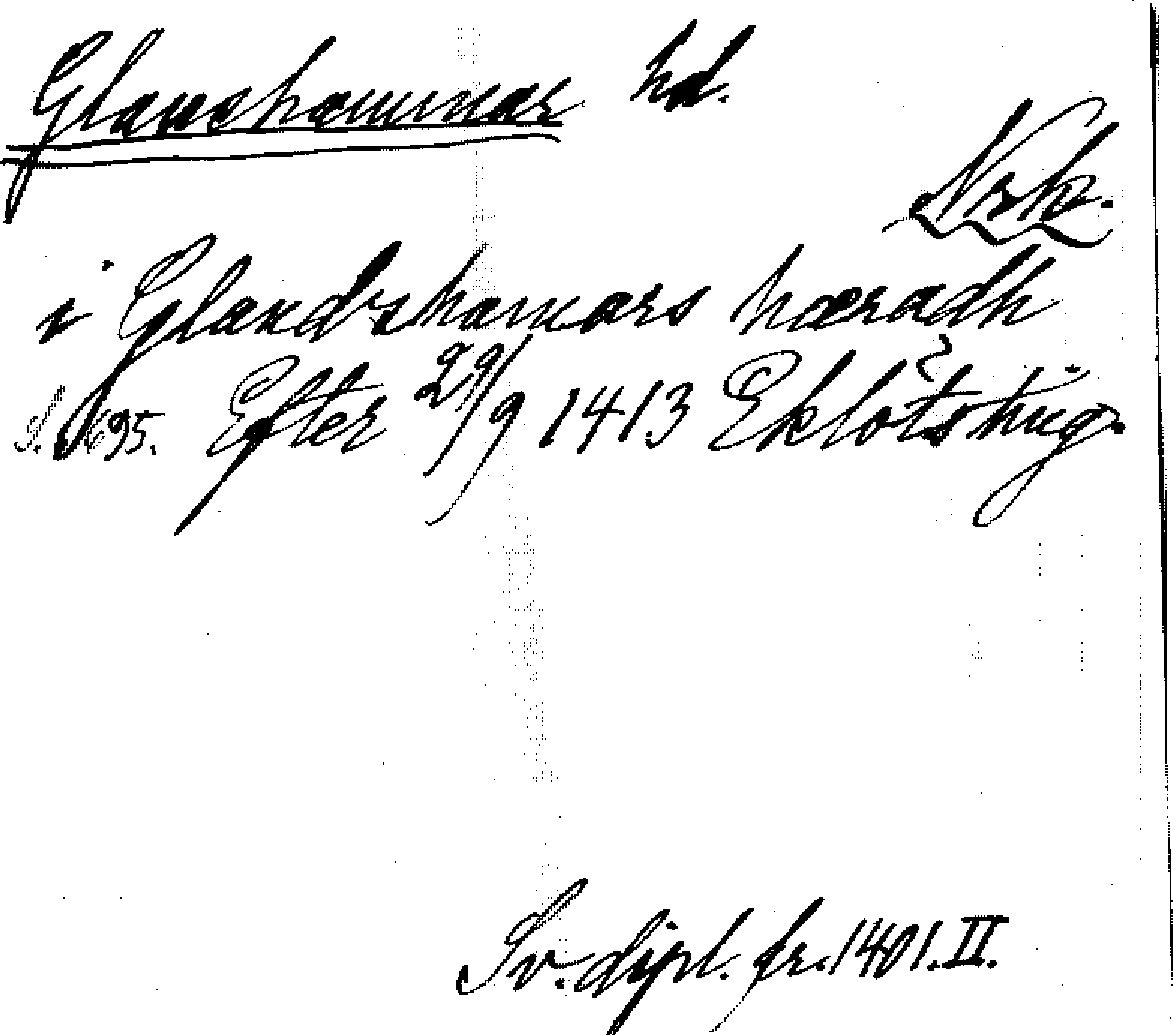 Glanshammar hd.
Nrk.
i Glandzhamars hæradh
S. 695. Efter 29/9 1413
Sv. dipl. fr. 1401. II.